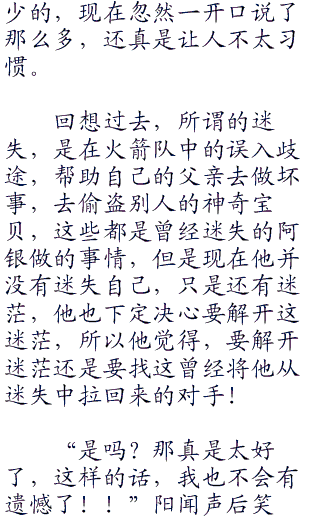 少的，现在忽然一开口说了
那么多，还真是让人不太习
惯。
回想过去，所谓的迷
失，是在火箭队中的误入歧
途，帮助自己的父亲去做坏
事，去偷盗别人的神奇宝
贝，这些都是曾经迷失的阿
银做的事情，但是现在他并
没有迷失自己，只是还有迷
茫，他也下定决心要解开这
迷茫，所以他觉得，要解开
迷茫还是要找这曾经将他从
迷失中拉回来的对手！
“是吗？那真是太好
了，这样的话，我也不会有
遗憾了！！”阳闻声后笑